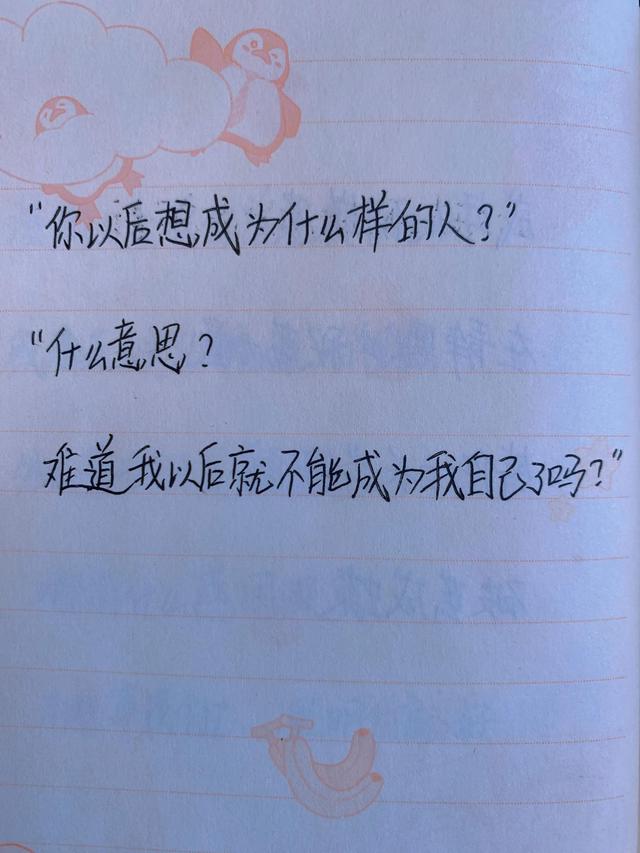 “你以后想成为什么样的人？”
“什么意思？
难道我以后就不能成为我自己了吗？”